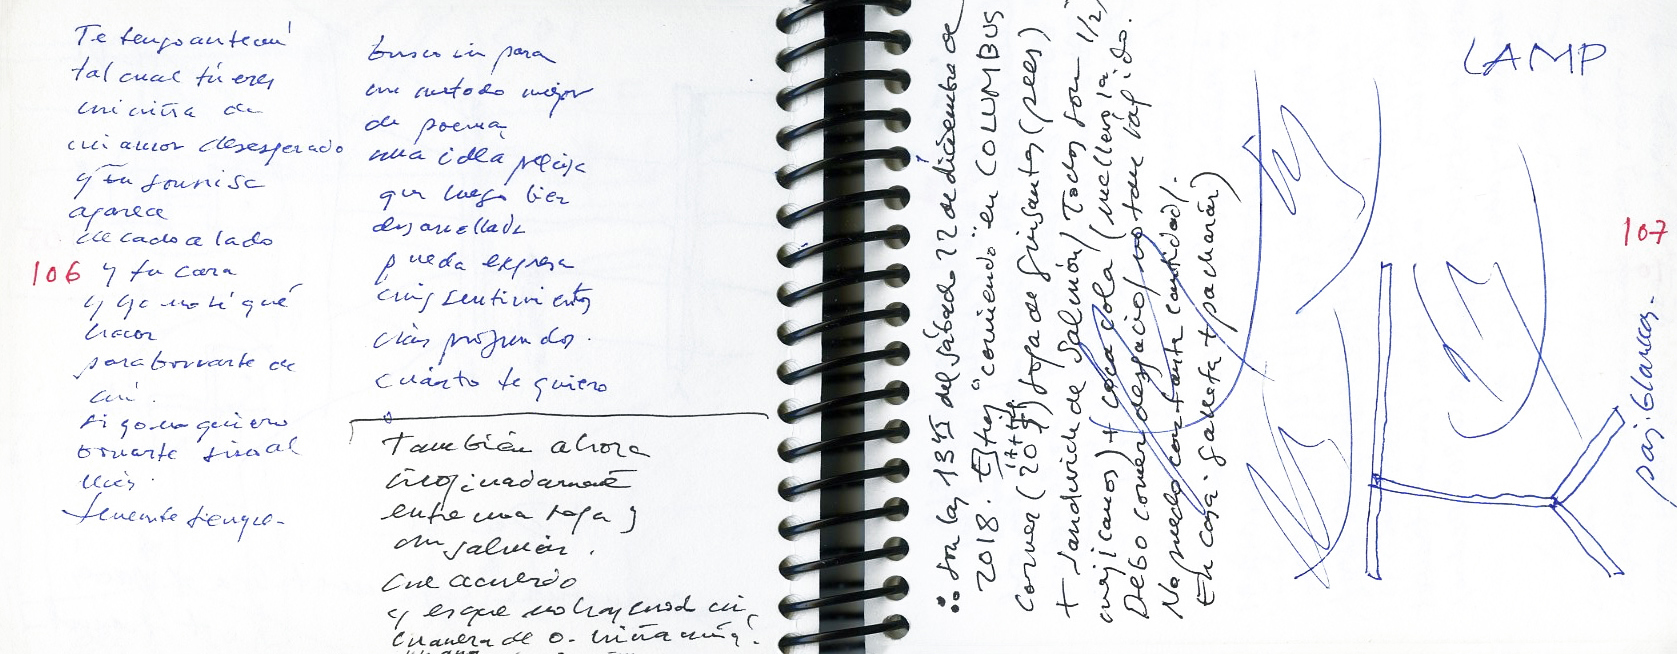 Te tengo ante mí
tal cual tú eres
mi niña de
mi amor desesperado
y tu sonrisa
aparece
de lado a lado
106 y tu cara
y yo no sé qué
hacer
para borrarte de
mí.
si yo no quiero
borrarte sino al
tenerte siempre.
busco in para
un método mejor
de poema,
una idea precisa
que luego bien
desarrollada
pueda expresar
mis sentimientos
más profundos.
cuánto te quiero
También ahora
imaginadamente
entre una sopa y
un salmón.
me acuerdo
y es que no hay
manera de o. niña mía.
Son las 13 del sábado 22 de diciembre de
2018. Estoy "comiendo" en COLUMBUS
comer (20 sopa de guisantes (pees)
+ sandwich de salmón/ Todos son 1/2/
mejicanos) + coca cola (me llevo la
Debo comer despacio/ no tan rápido.
No puedo con tanta cantidad/.
En casa. galleta + pacharán)
LAMP
107
país blancos.